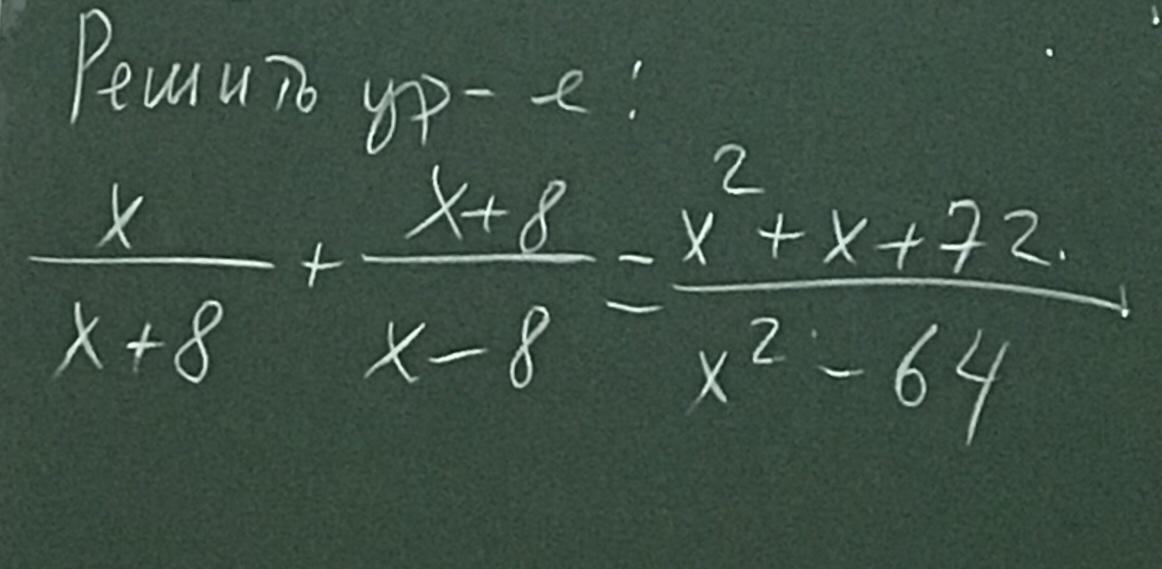 Решить ур-е:
x/(x+8) + (x+8)/(x-8) = (x²+x+72)/(x²-64)